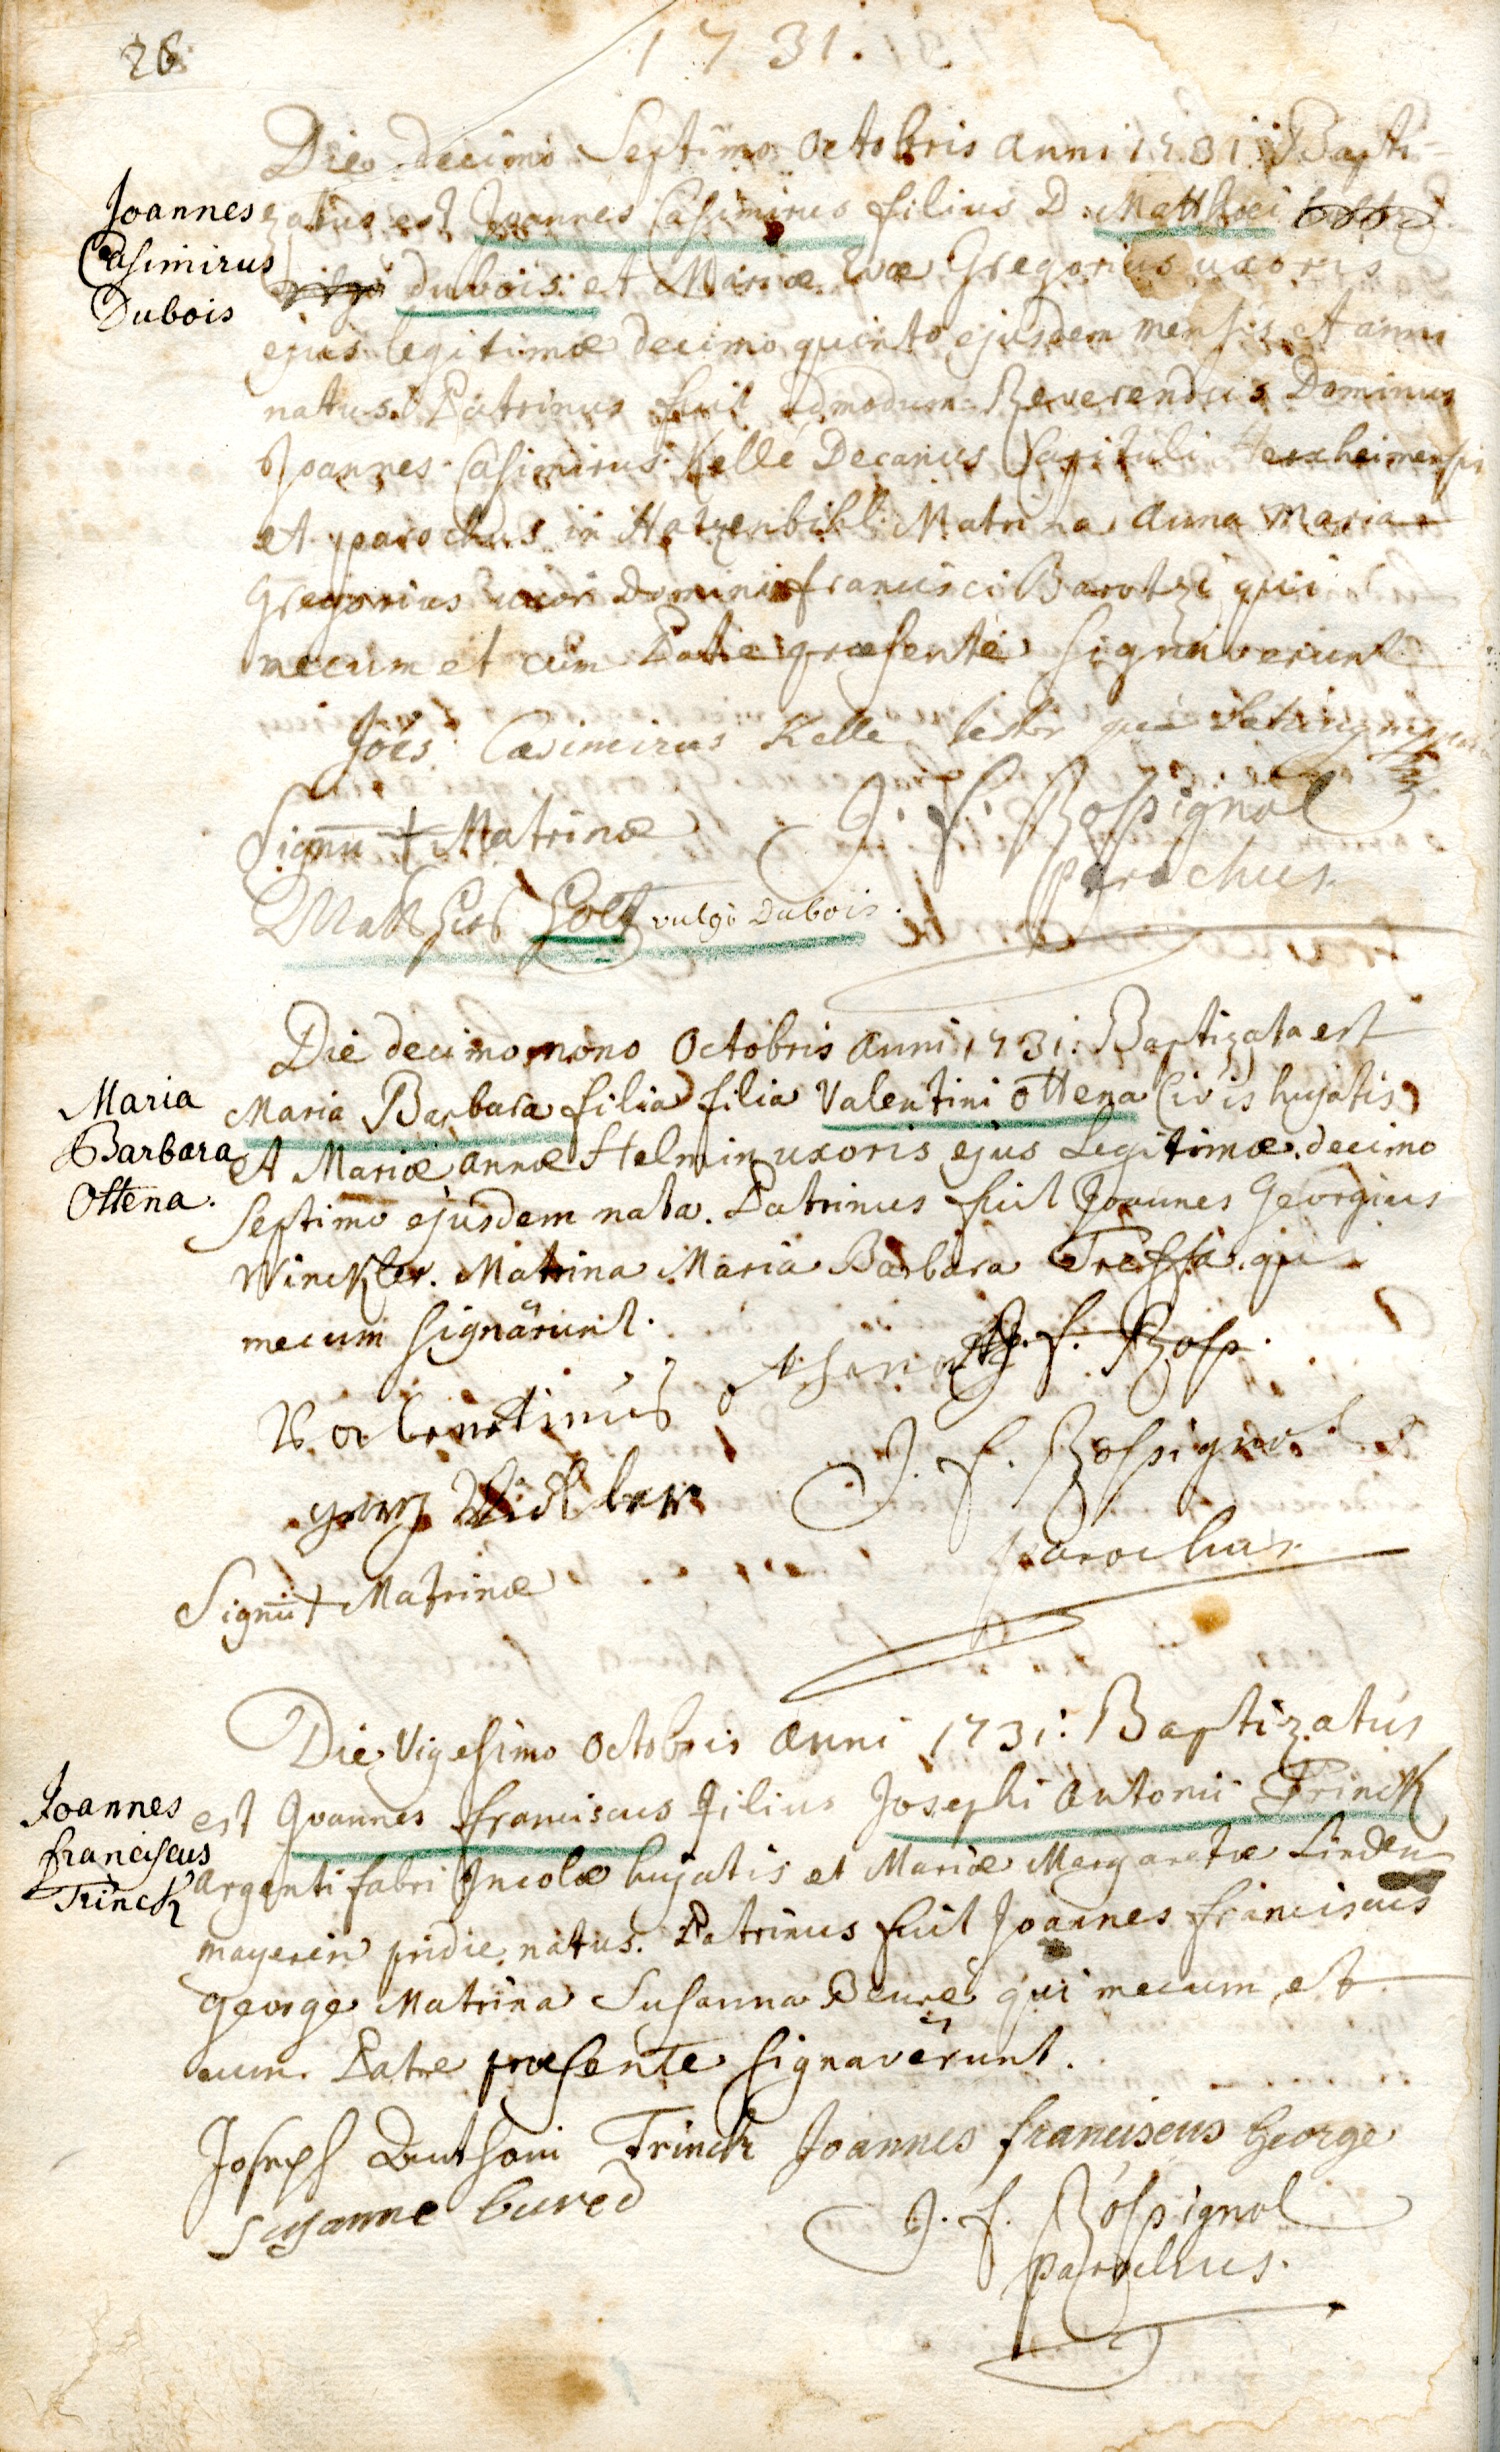 26
1731.
Die decimo Septimo Octobris anni 1731: Bapti-
Joannes
Casimirus
Dubois
zatus est Joannes Casimirus filius D. Matthæi
dubois: et Mariæ Evæ Gregorius uxoris
ejus legitimæ decimo quinto ejusdem mensis et anni
natus. Patrinus fuit admodum Reverendus Dominus
Joannes Casimirus Kelle Decanus Capituli Herxheimensis
et parochus in Hatzenbihl: Matrina Anna Maria
Gregorius uxor Domini francisci Barotzi qui
mecum et cum Patre præsente signaverunt
Joes Casimirus Kelle testor qua
Signu + Matrinæ
J. f. Rossignol
parochus.
Matheis Holtz vulgo Dubois.
Die decimo nono Octobris anni 1731: Baptizata est
Maria
Barbara
Ottena.
Maria Barbara filia filia Valentini Ottena Civis hujatis
et Mariæ annæ Helmin uxoris ejus Legitimæ. decimo
Septimo ejusdem nata. Patrinus fuit Joannes Georgius
Winckler. Matrina Maria Barbara Treffa. qui
mecum signârunt.
J. f. Ross.
Vallenttinus
J. f. Rossignol
parochus.
Signū + Matrinæ
Die Vigesimo Octobris anni 1731: Baptizatus
Joannes
franciscus
Trinck
est Joannes franciscus filius Josephi Antonii Trinck
argenti fabri Incolæ hujatis et Mariæ Margaretæ Linden
mayerin pridie natus. Patrinus fuit Joannes franciscus
george Matrina Susanna Beuré qui mecum et
cum Patre præsente signavêrunt.
Joseph Anthoni Trinck Joannes franciscus George
susanne bured
J. f. Rossignol
parochus.